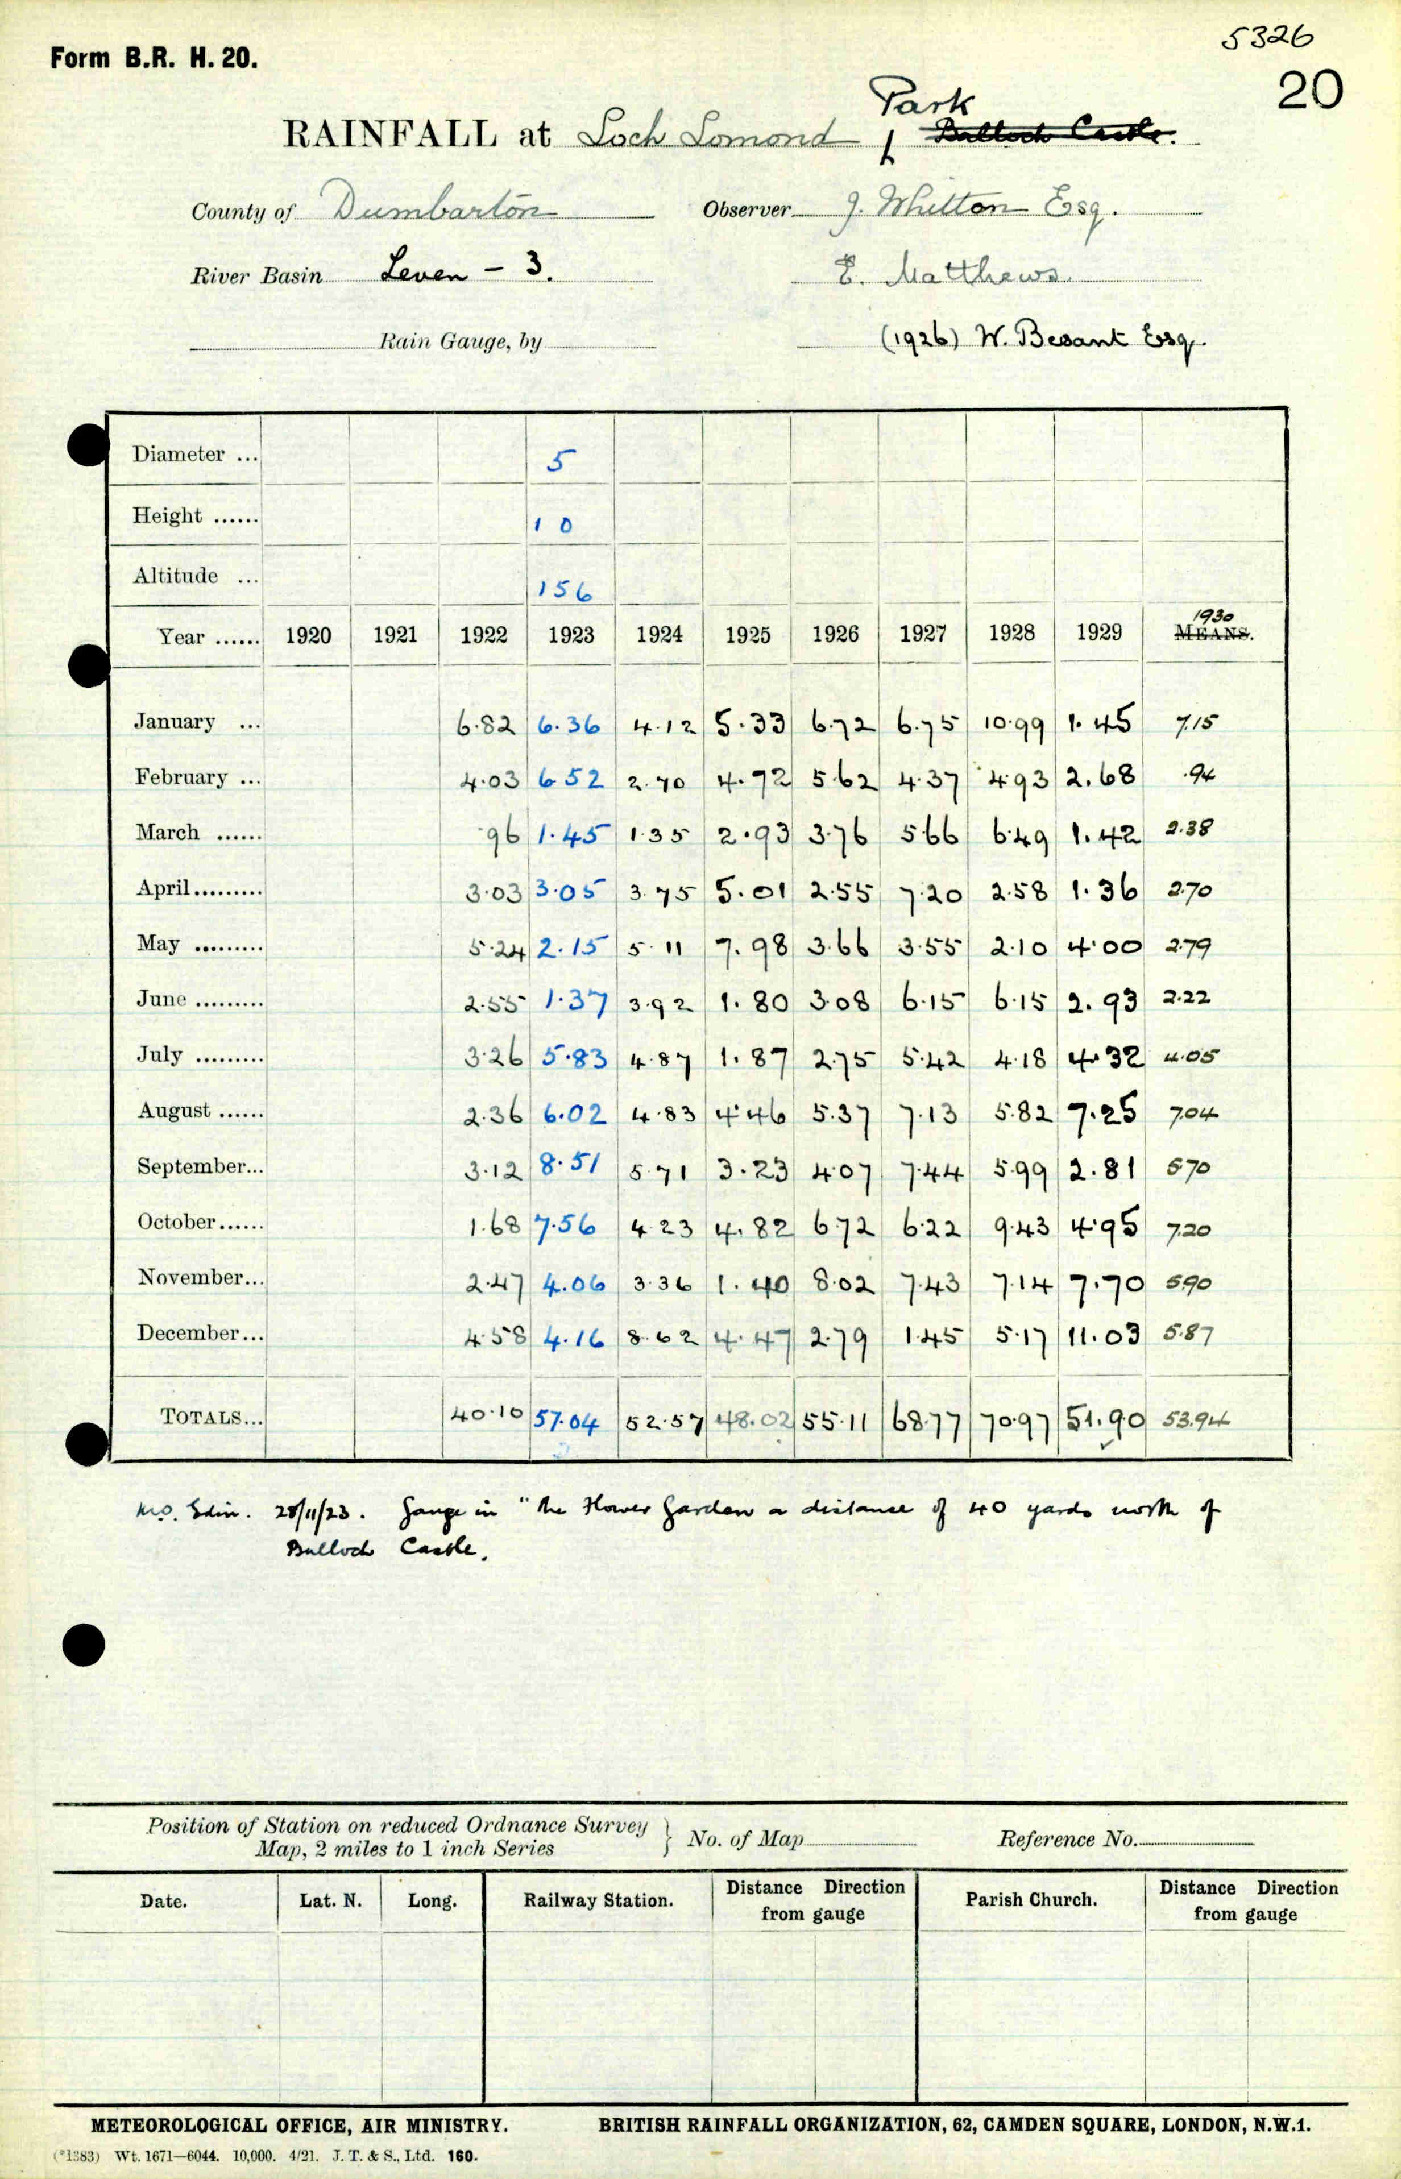 5326
Form B.R. H. 20.
20
Park
RAINFALL at Loch Lomond Balloch Castle.
County of Dumbarton Observer J. Whitton Esq.
River Basin Leven - 3. E. Matthews.
Rain Gauge, by (1926) W. Besant Esq.
Diameter ... 5
Height ...... 10
Altitude ... 156
1930
Year ...... 1920 1921 1922 1923 1924 1925 1926 1927 1928 1929 MEANS.
January ... 6.82 6.36 4.12 5.33 6.72 6.75 10.99 1.45 7.15
February ... 4.03 6.52 2.70 4.72 5.62 4.37 4.93 2.68 .94
March ...... .96 1.45 1.35 2.93 3.76 5.66 6.49 1.42 2.38
April......... 3.03 3.05 3.75 5.01 2.55 7.20 2.58 1.36 2.70
May ......... 5.24 2.15 5.11 7.98 3.66 3.55 2.10 4.00 2.79
June ......... 2.55 1.37 3.92 1.80 3.08 6.15 6.15 2.93 2.22
July ......... 3.26 5.83 4.87 1.87 2.75 5.42 4.18 4.32 4.05
August ...... 2.36 6.02 4.83 4.46 5.37 7.13 5.82 7.25 7.04
September... 3.12 8.51 5.71 3.23 4.07 7.44 5.99 2.81 5.70
October...... 1.68 7.56 4.23 4.82 6.72 6.22 9.43 4.95 7.20
November... 2.47 4.06 3.36 1.40 8.02 7.43 7.14 7.70 5.90
December... 4.58 4.16 8.62 4.47 2.79 1.45 5.17 11.03 5.87
TOTALS... 40.10 57.04 52.57 48.02 55.11 68.77 70.97 51.90 53.94
M.O. Edin. 28/11/23. Gauge in "the Flower Garden a distance of 40 yards north of
Balloch Castle.
Position of Station on reduced Ordnance Survey
Map, 2 miles to 1 inch Series } No. of Map Reference No.
Date. Lat. N. Long. Railway Station. Distance Direction from gauge Parish Church. Distance Direction from gauge
METEOROLOGICAL OFFICE, AIR MINISTRY. BRITISH RAINFALL ORGANIZATION, 62, CAMDEN SQUARE, LONDON, N.W.1.
(*1383) Wt. 1671—6044. 10,000. 4/21. J. T. & S., Ltd. 160.